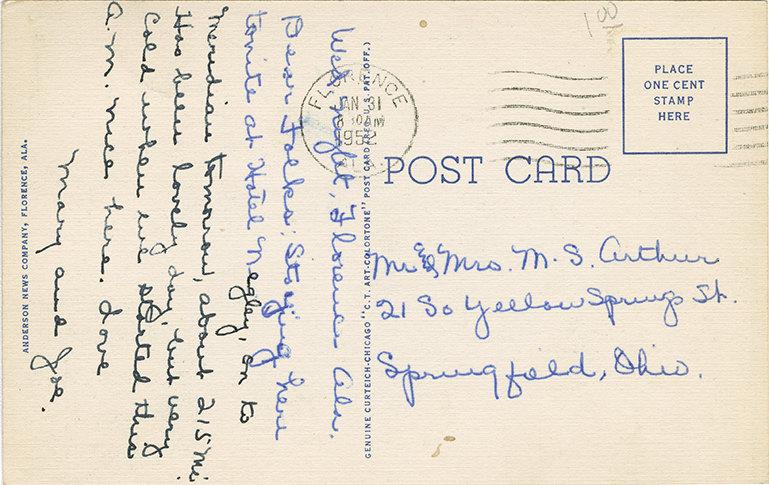 Wed night, Florence Ala.
Dear Folks: Staying here
tonite at Hotel Negley, on to
Meridian tomorrow, about 215 mi.
Has been lovely day, but very
Cold when we started this
A.M. nice here. Love
Mary and Joe.
ANDERSON NEWS COMPANY, FLORENCE, ALA.
GENUINE CURTEICH-CHICAGO "C.T. ART-COLORTONE" POST CARD (REG. U.S. PAT. OFF.)
1 00
FLORENCE
JAN 31
AM
195
PLACE
ONE CENT
STAMP
HERE
POST CARD
Mr & Mrs. M. S. Arthur
21 So Yellow Springs St.
Springfield, Ohio.